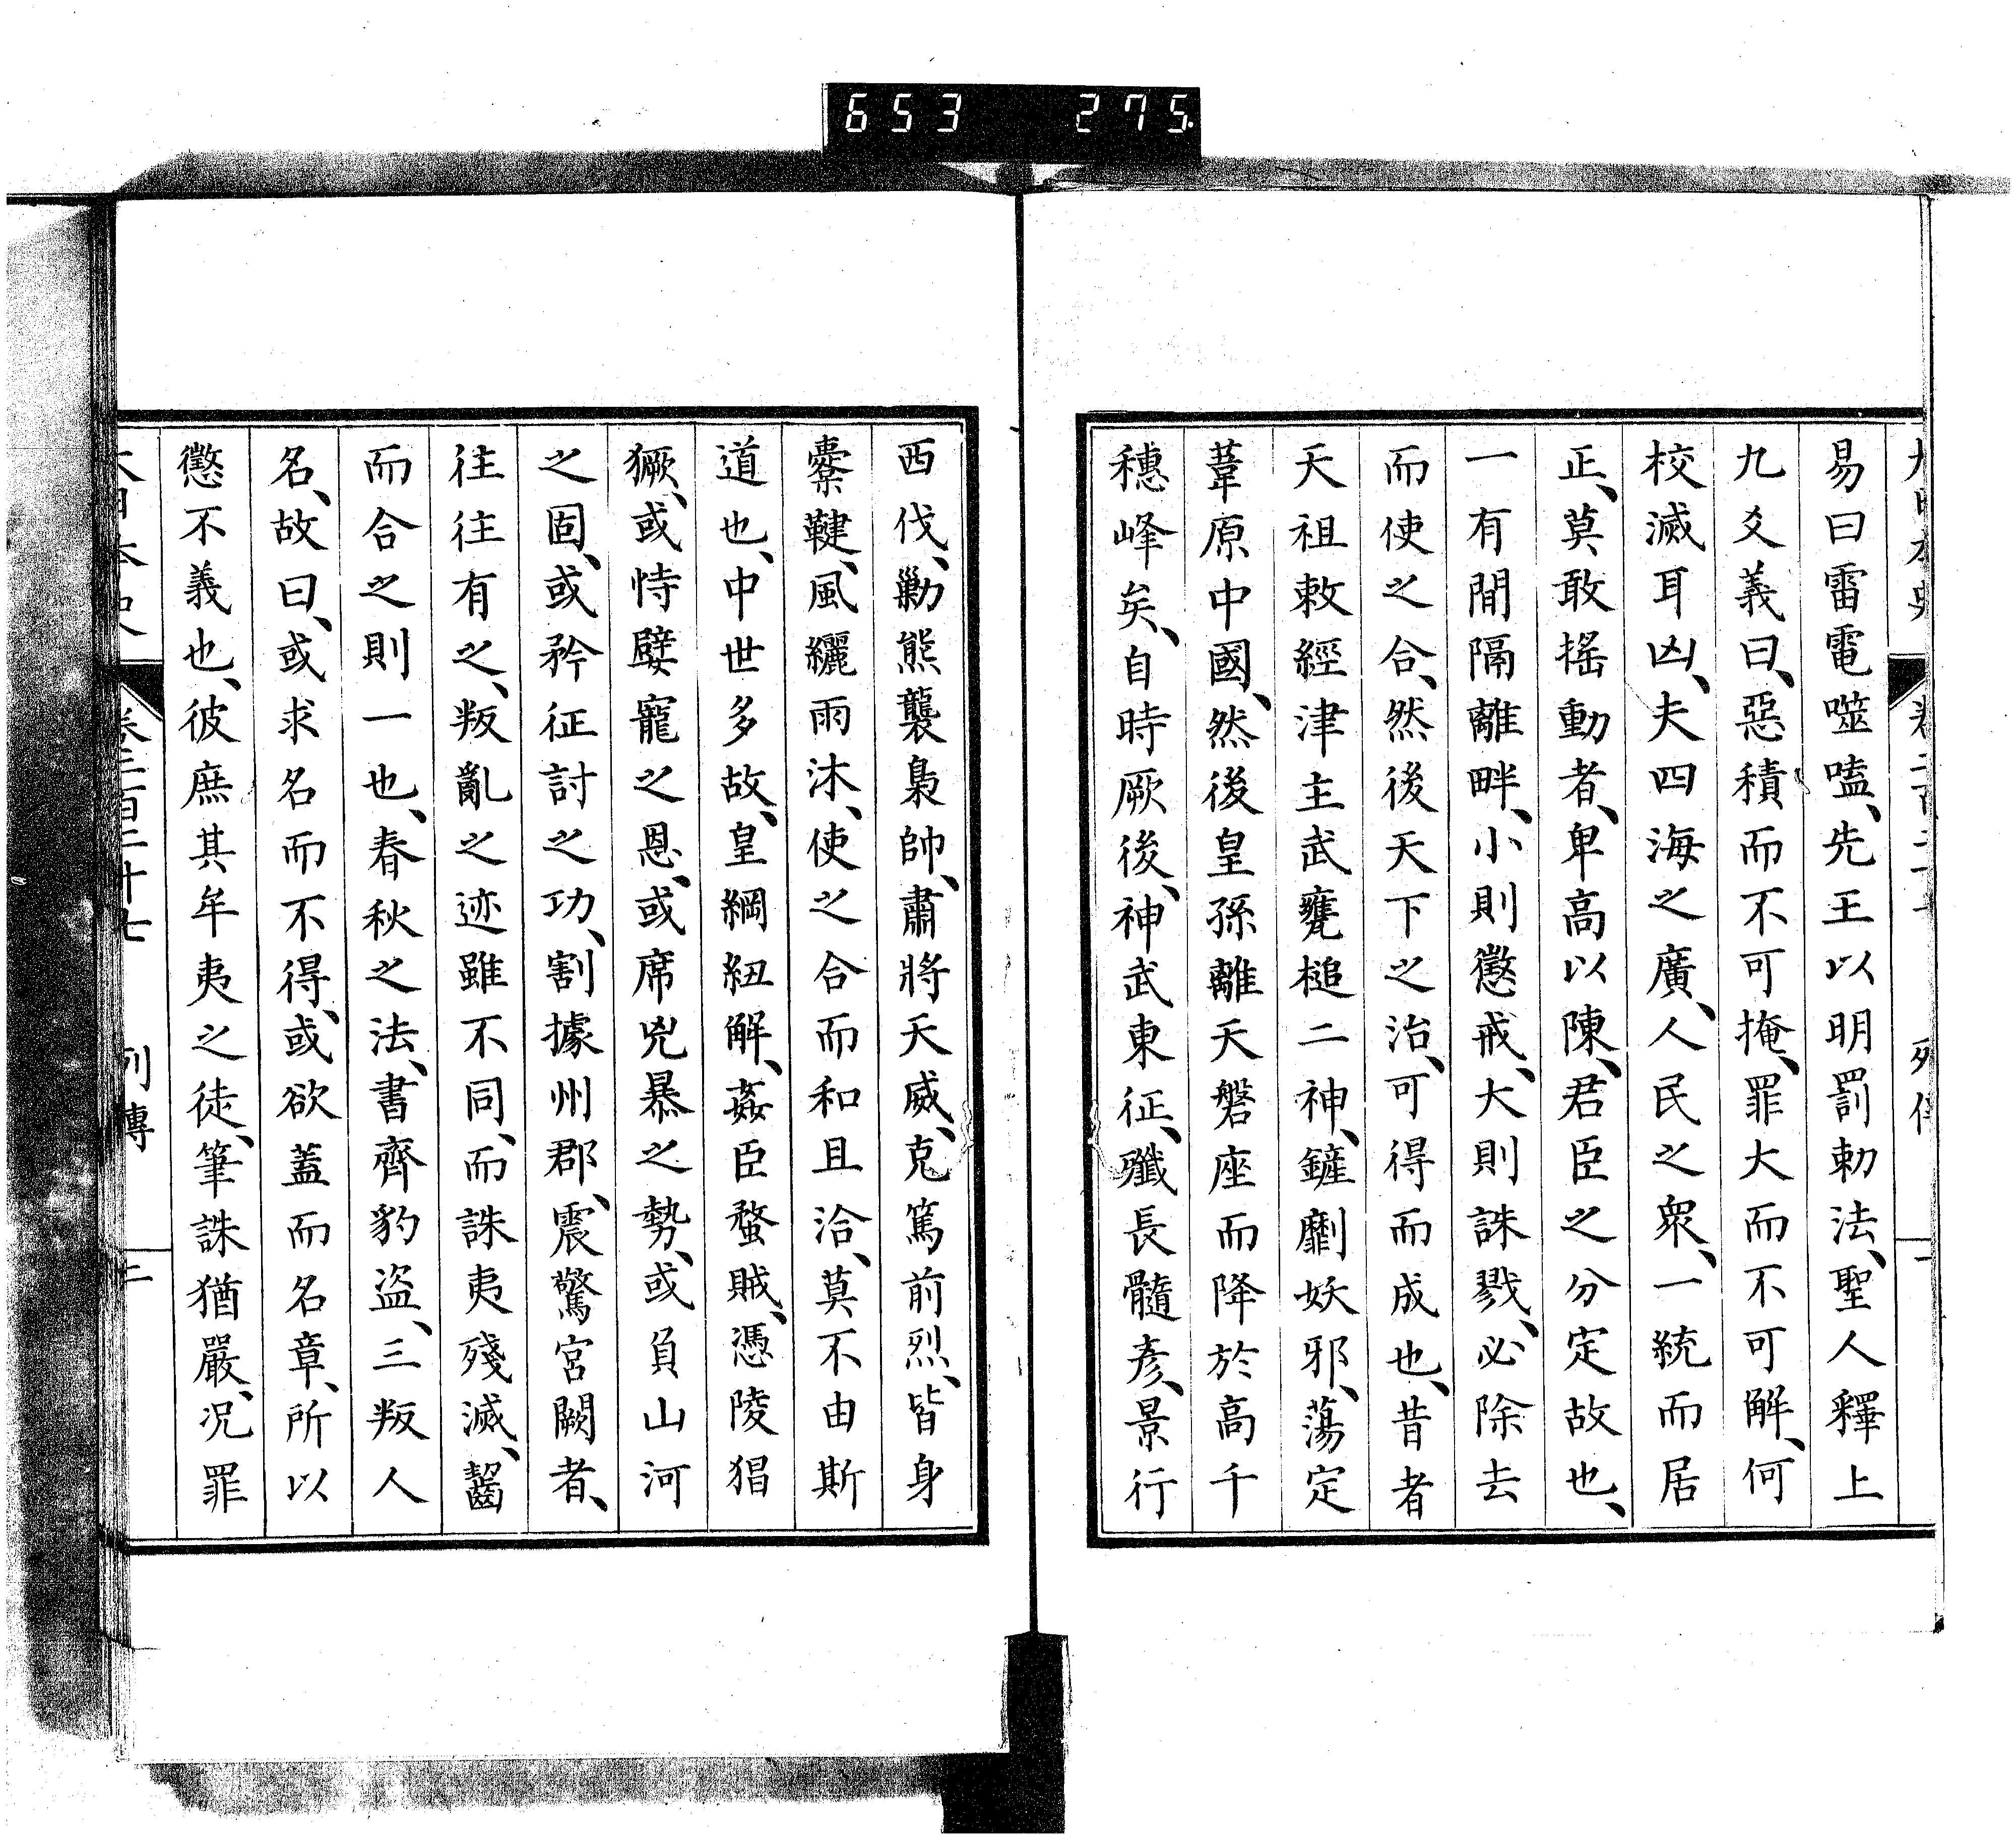 653 275
易曰雷電噬嗑、先王以明罰勅法、聖人釋上
九爻義曰、惡積而不可掩、罪大而不可解、何
校滅耳凶、夫四海之廣、人民之衆、一統而居
正、莫敢搖動者、卑高以陳、君臣之分定故也、
一有間隔離畔、小則懲戒、大則誅戮、必除去
而使之合、然後天下之治、可得而成也、昔者
天祖敕經津主武甕槌二神、鏟劘妖邪、蕩定
葦原中國、然後皇孫離天磐座而降於高千
穗峰矣、自時厥後、神武東征、殲長髓彥、景行
西伐、勦熊襲梟帥、肅將天威、克篤前烈、皆身
櫜鞬、風纚雨沐、使之合而和且洽、莫不由斯
道也、中世多故、皇綱紐解、姦臣蝥賊、憑陵猖
獗、或恃嬖寵之恩、或席兇暴之勢、或負山河
之固、或矜征討之功、割據州郡、震驚宮闕者、
往往有之、叛亂之迹雖不同、而誅夷殘滅、齧
而合之則一也、春秋之法、書齊豹盜、三叛人
名、故曰、或求名而不得、或欲蓋而名章、所以
懲不義也、彼庶其牟夷之徒、筆誅猶嚴、況罪
大日本史 卷二百二十七 列傳 二